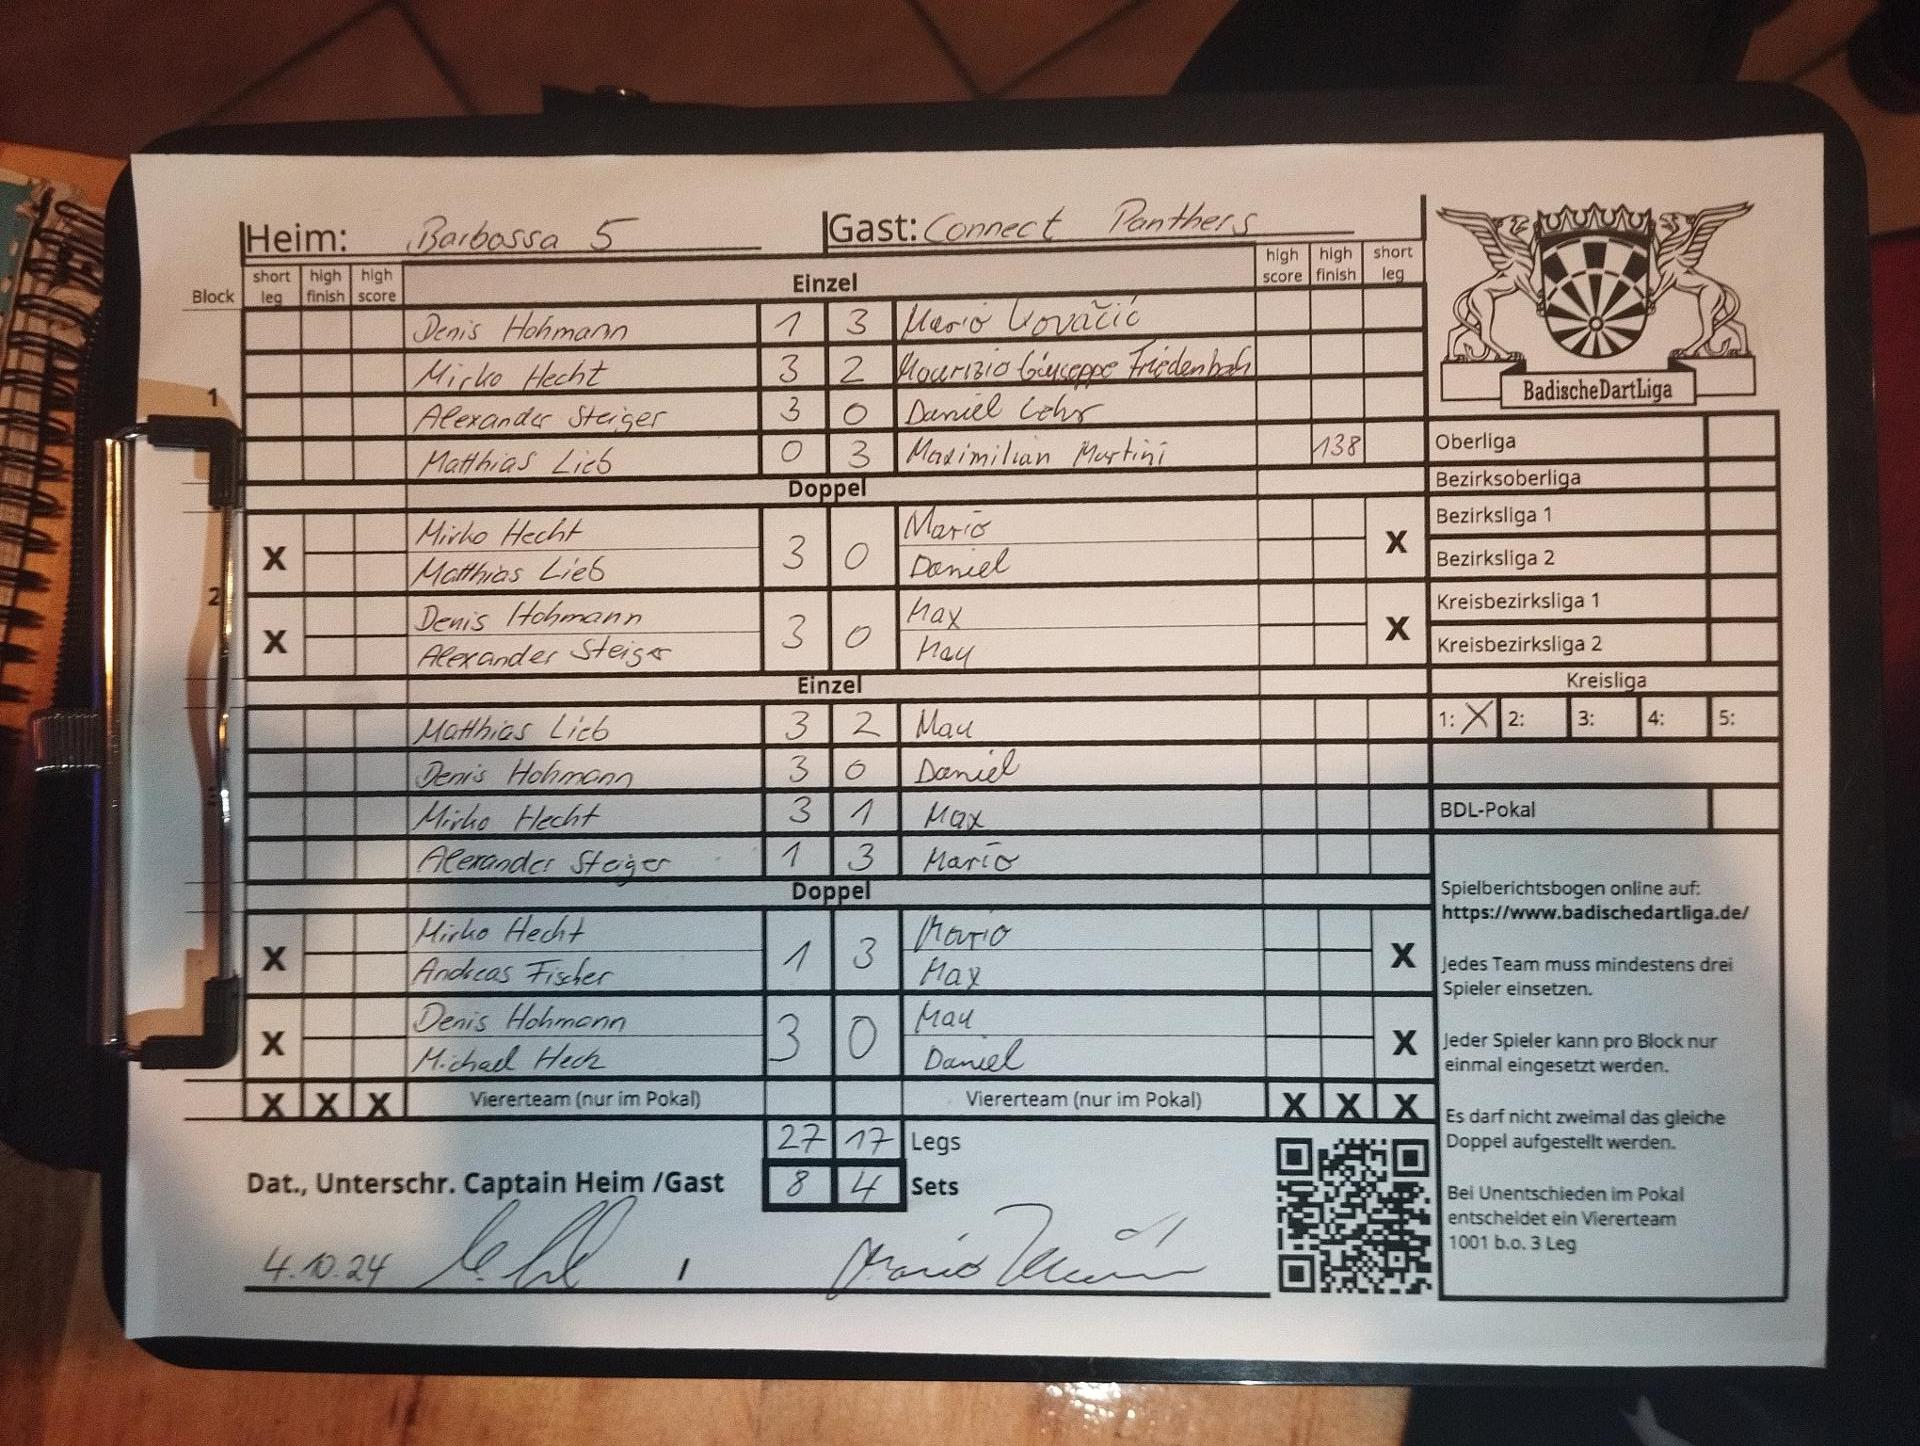 Heim: Barbossa 5 Gast: Connect Panthers
Block short leg high finish high score Einzel high score high finish short leg
Denis Hohmann 1 3 Mario Kovačić
Mirko Hecht 3 2 Maurizio Giuseppe Friedenbah
1 Alexander Steiger 3 0 Daniel Lehr
Matthias Lieb 0 3 Maximilian Martini 138
Doppel
Mirko Hecht Mario
X 3 0 X
Matthias Lieb Daniel
2
Denis Hohmann Max
X 3 0 X
Alexander Steiger Mau
Einzel
Matthias Lieb 3 2 Mau
Denis Hohmann 3 0 Daniel
Mirko Hecht 3 1 Max
Alexander Steiger 1 3 Mario
Doppel
Mirko Hecht Mario
X 1 3 X
Andreas Fischer Max
Denis Hohmann Mau
X 3 0 X
Michael Heck Daniel
X X X Viererteam (nur im Pokal) Viererteam (nur im Pokal) X X X
27 17 Legs
Dat., Unterschr. Captain Heim /Gast 8 4 Sets
4.10.24 / Mario
BadischeDartLiga
Oberliga
Bezirksoberliga
Bezirksliga 1
Bezirksliga 2
Kreisbezirksliga 1
Kreisbezirksliga 2
Kreisliga
1: X 2: 3: 4: 5:
BDL-Pokal
Spielberichtsbogen online auf:
https://www.badischedartliga.de/
Jedes Team muss mindestens drei
Spieler einsetzen.
Jeder Spieler kann pro Block nur
einmal eingesetzt werden.
Es darf nicht zweimal das gleiche
Doppel aufgestellt werden.
Bei Unentschieden im Pokal
entscheidet ein Viererteam
1001 b.o. 3 Leg